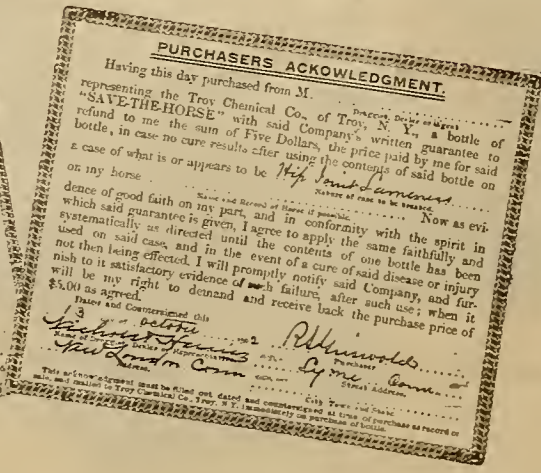 PURCHASERS ACKOWLEDGMENT.
Having this day purchased from M.
Druggist, Dealer or Agent
representing the Troy Chemical Co., of Troy, N. Y., a bottle of
"SAVE-THE-HORSE" with said Company's written guarantee to
refund to me the sum of Five Dollars, the price paid by me for said
bottle, in case no cure results after using the contents of said bottle on
a case of what is or appears to be Hip Joint Lameness
Nature of case to be treated.
on my horse Now as evi-
Name and Record of Horse if possible.
dence of good faith on my part, and in conformity with the spirit in
which said guarantee is given, I agree to apply the same faithfully and
systematically as directed until the contents of one bottle has been
used on said case, and in the event of a cure of said disease or injury
not then being effected. I will promptly notify said Company, and fur-
nish to it satisfactory evidence of such failure, after such use; when it
will be my right to demand and receive back the purchase price of
$5.00 as agreed.
Dated and Countersigned this
3 October 2 R Griswold
Name of Druggist, Dealer or Representative Purchaser
New London Conn Lyme Conn
Address. Street Address.
City Town and State
This acknowledgment must be filled out dated and countersigned at time of purchase as record of
sale, and mailed to Troy Chemical Co., Troy, N. Y. immediately on purchase of bottle.